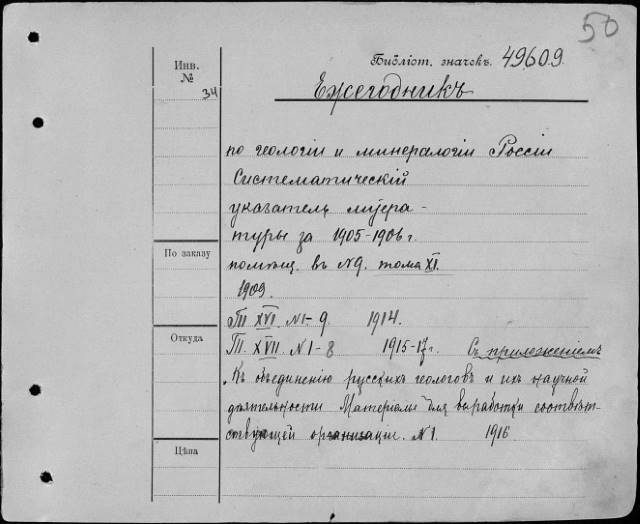 50
Инв.
№
34
Библіот. значекъ. 49609.
Ежегодникъ
по геологіи и минералогіи Россіи
Систематическій
указатель литера-
туры за 1905-1906 г.
помѣщ. въ №9. тома XI.
1909.
ТТ XVI. №1-9 1914.
ТТ. XVII. №1-8 1915-17 г. Съ приложеніемъ
По заказу
Откуда
Цѣна
„Къ объединенію русскихъ геологовъ и ихъ научной
дѣятельности Матеріалы для выработки соотвѣт-
ствующей организаціи. №1. 1916